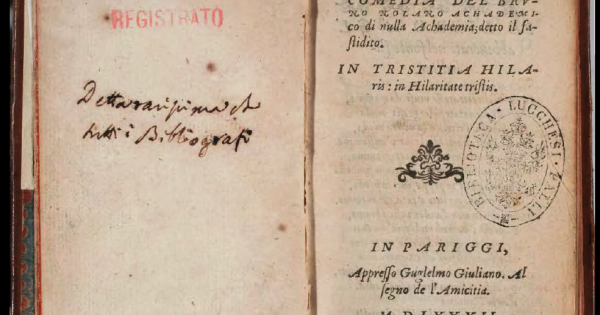 REGISTRATO
Detta rarissima da
tutti i Bibliografi
COMEDIA DEL BRV-
NO NOLANO ACHADEMI-
co di nulla Achademia; detto il fa-
stidito.
IN TRISTITIA HILA-
ris: in Hilaritate tristis.
BIBLIOTECA LUCCHESI-PALLI
IN PARIGGI,
Appresso Guglelmo Giuliano. Al
segno de l'Amicitia.
M D LXXXII